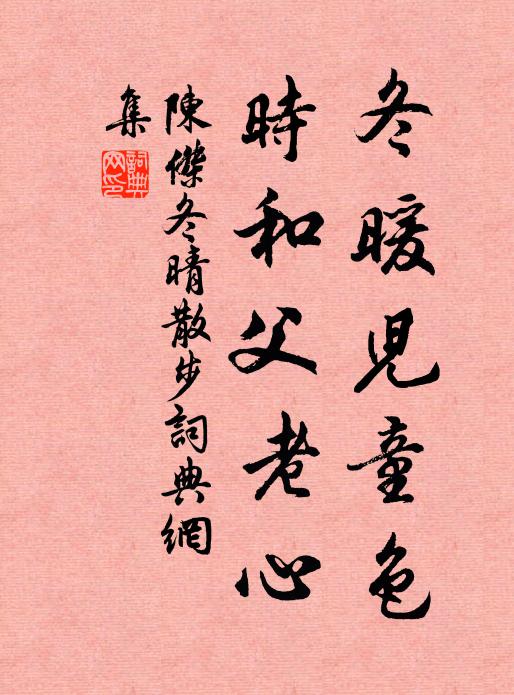 冬暖兒童色
時和父老心
陳傑冬晴散步詞典網
集
詞典
网印